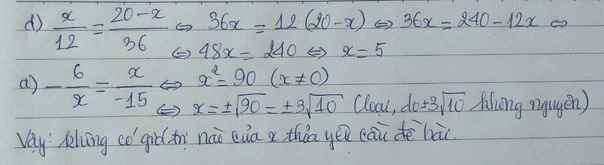 d) x/12 = 20-x/36 ⇔ 36x = 12(20-x) ⇔ 36x = 240-12x ⇔
⇔ 48x = 240 ⇔ x = 5
a) -6/x = x/-15 ⇔ x² = 90 (x≠0)
⇔ x = ±√90 = ±3√10 (loại, do ±3√10 không nguyên)
Vậy: không có giá trị nào của x thỏa yêu cầu đề bài.